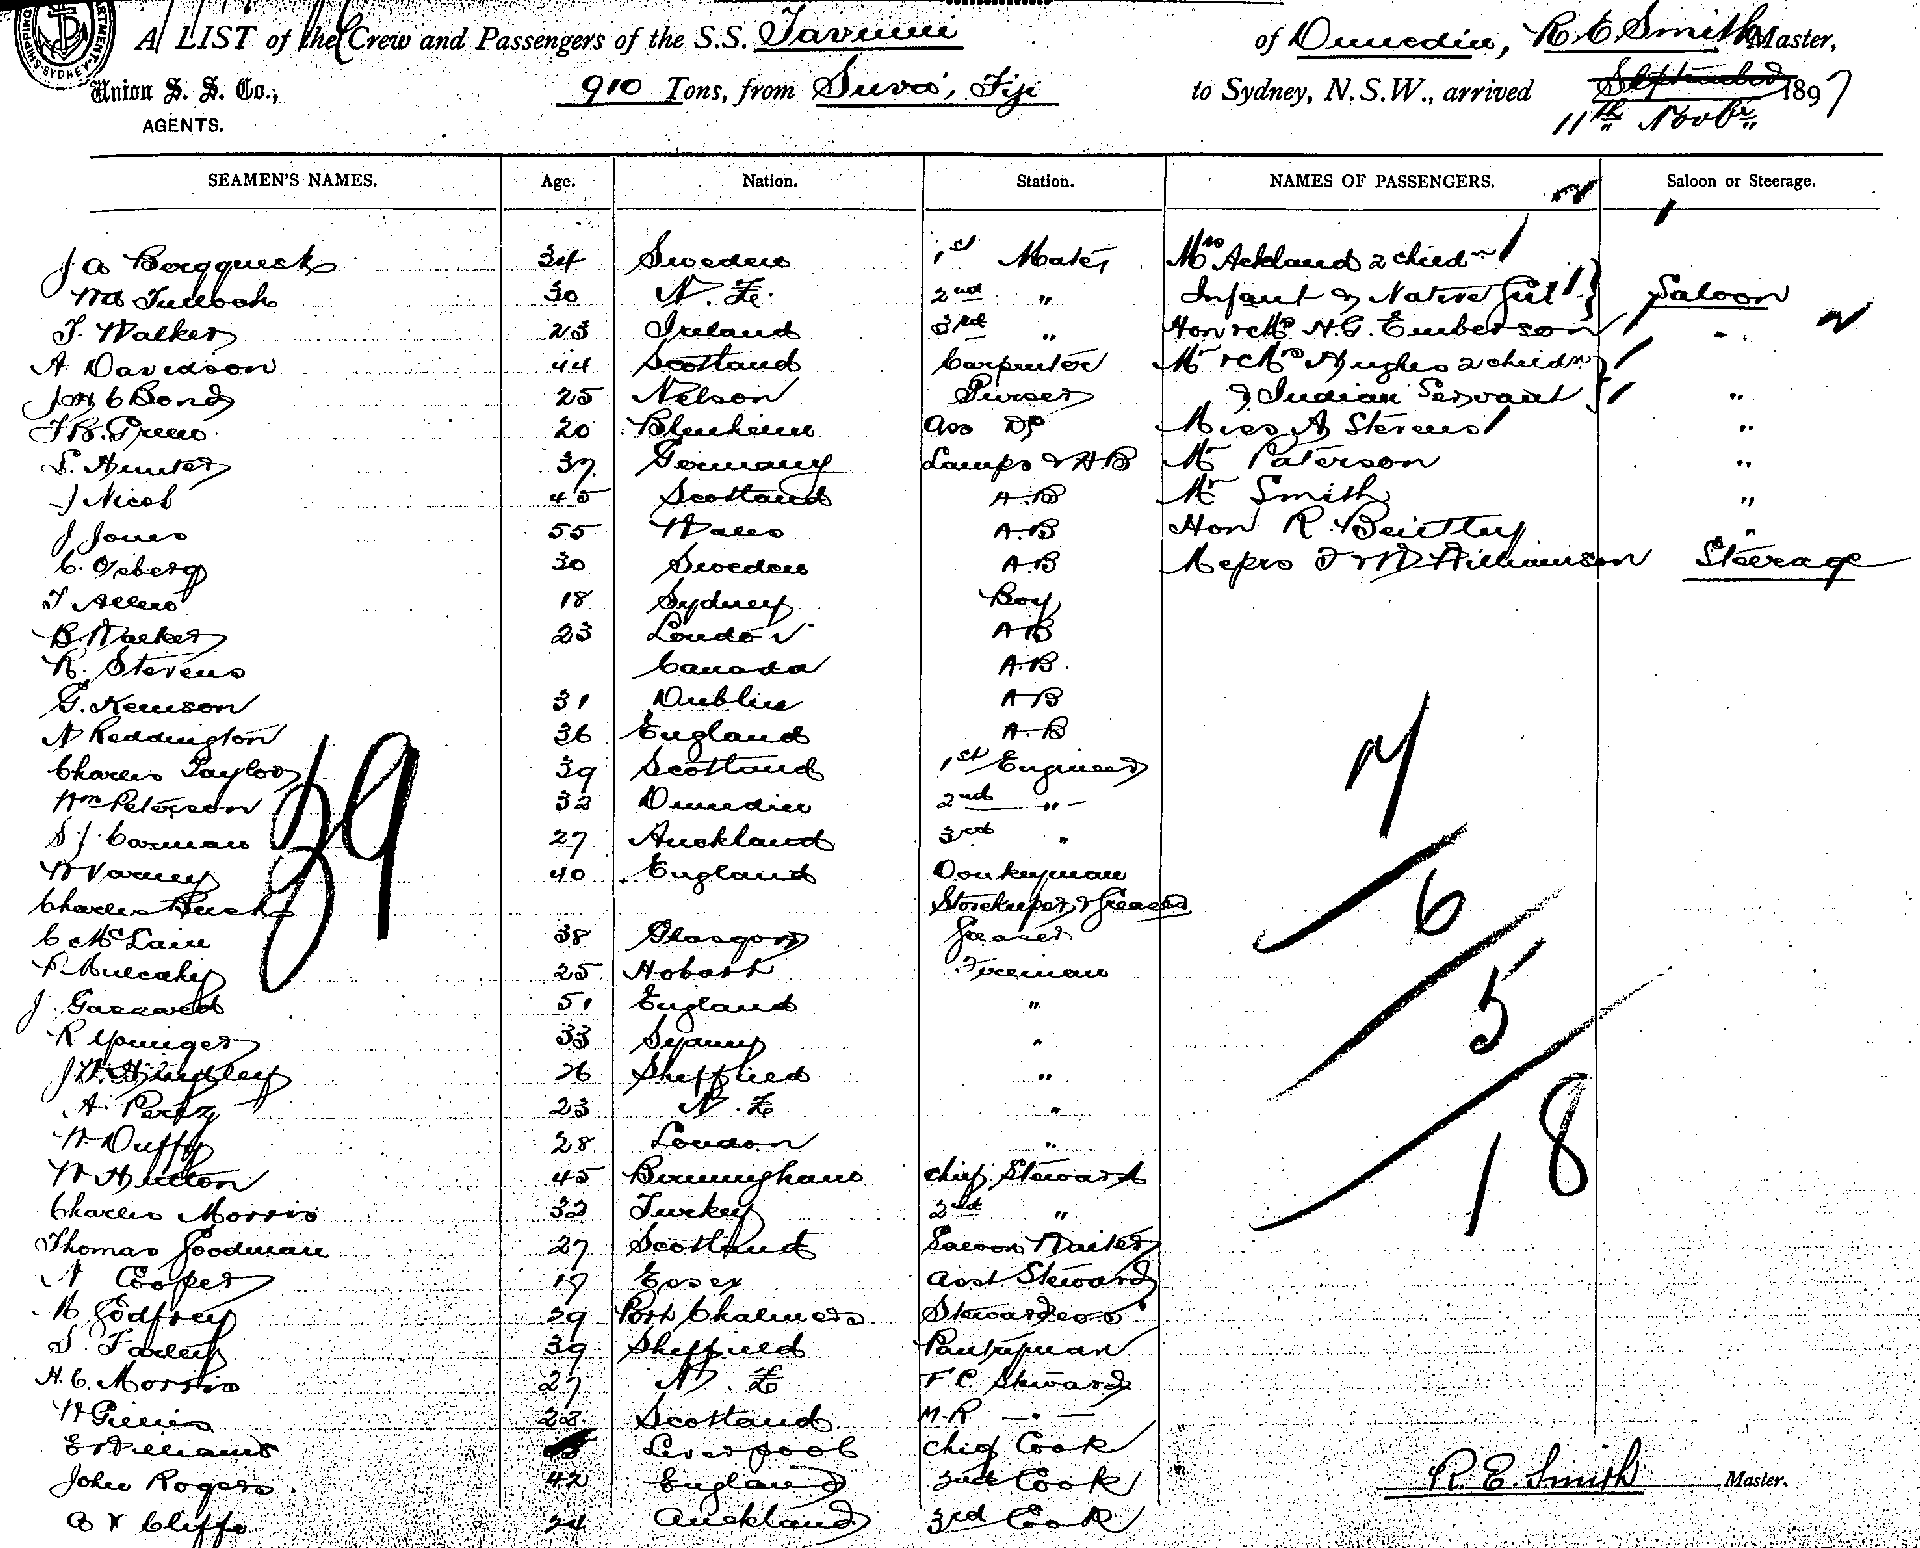 A LIST of the Crew and Passengers of the S.S. Taviuni of Dunedin, R. E. Smith Master,
Union S. S. Co., 910 Tons, from Suva, Fiji to Sydney, N.S.W., arrived September 1897
AGENTS. 11th Novbr
SEAMEN'S NAMES. Age. Nation. Station. NAMES OF PASSENGERS. Saloon or Steerage.
J A Bergquist 34 Sweden 1st Mate, Mrs Ackland 2 child
Wm Tulloch 30 N. Z. 2nd " Infant & Native Girl Saloon
T. Walker 23 Ireland 3rd " Hon & Mrs H. G. Emberson "
A Davidson 44 Scotland Carpenter Mr & Mrs Hughes 2 child
Jas C Bond 25 Nelson Purser & Indian Servant "
Green 20 Blenheim Ass Do Miss A Stevens "
S. Hunter 37 Germany Lamps & AB Mr Paterson "
J Nicol 45 Scotland A.B Mr Smith "
J Jones 55 Wales A.B Hon R. "
C. Oseberg 30 Sweden A.B Messrs J & W Williamson Steerage
T Allen 18 Sydney Boy
B Walker 23 London AB
R. Stevens Canada A.B.
G. Kewson 31 Dublin AB
N Reddington 36 England A.B
Charles Taylor 39 Scotland 1st Engineer
Wm Peterson 32 Dunedin 2nd "
S J. Carman 27 Auckland 3rd "
W Varney 40 England Donkeyman
Charles Storekeeper & Greaser
C McLain 38 Glasgow Greaser
Mulcahy 25 Hobart Fireman
J. 51 England "
R Younger 33 Sydney "
J. W. Hindley 26 Sheffield "
A. Percy 23 N. Z "
W Duffy 28 London "
W Hutton 45 Birmingham Chief Steward
Charles Morris 32 Turkey 2nd "
Thomas Goodman 27 Scotland Saloon Waiter
N Cooper 17 Essex Asst Steward
Godfrey 29 Port Chalmers Stewardess
S. Farley 39 Sheffield Pantryman
H. C. Morris 27 N. Z F C Steward
W Gillies 22 Scotland M.R "
E Williams Liverpool Chief Cook
John Rogers 42 England 2nd Cook R. E. Smith Master.
Cliffe 24 Auckland 3rd Cook
39
7
6
5
18